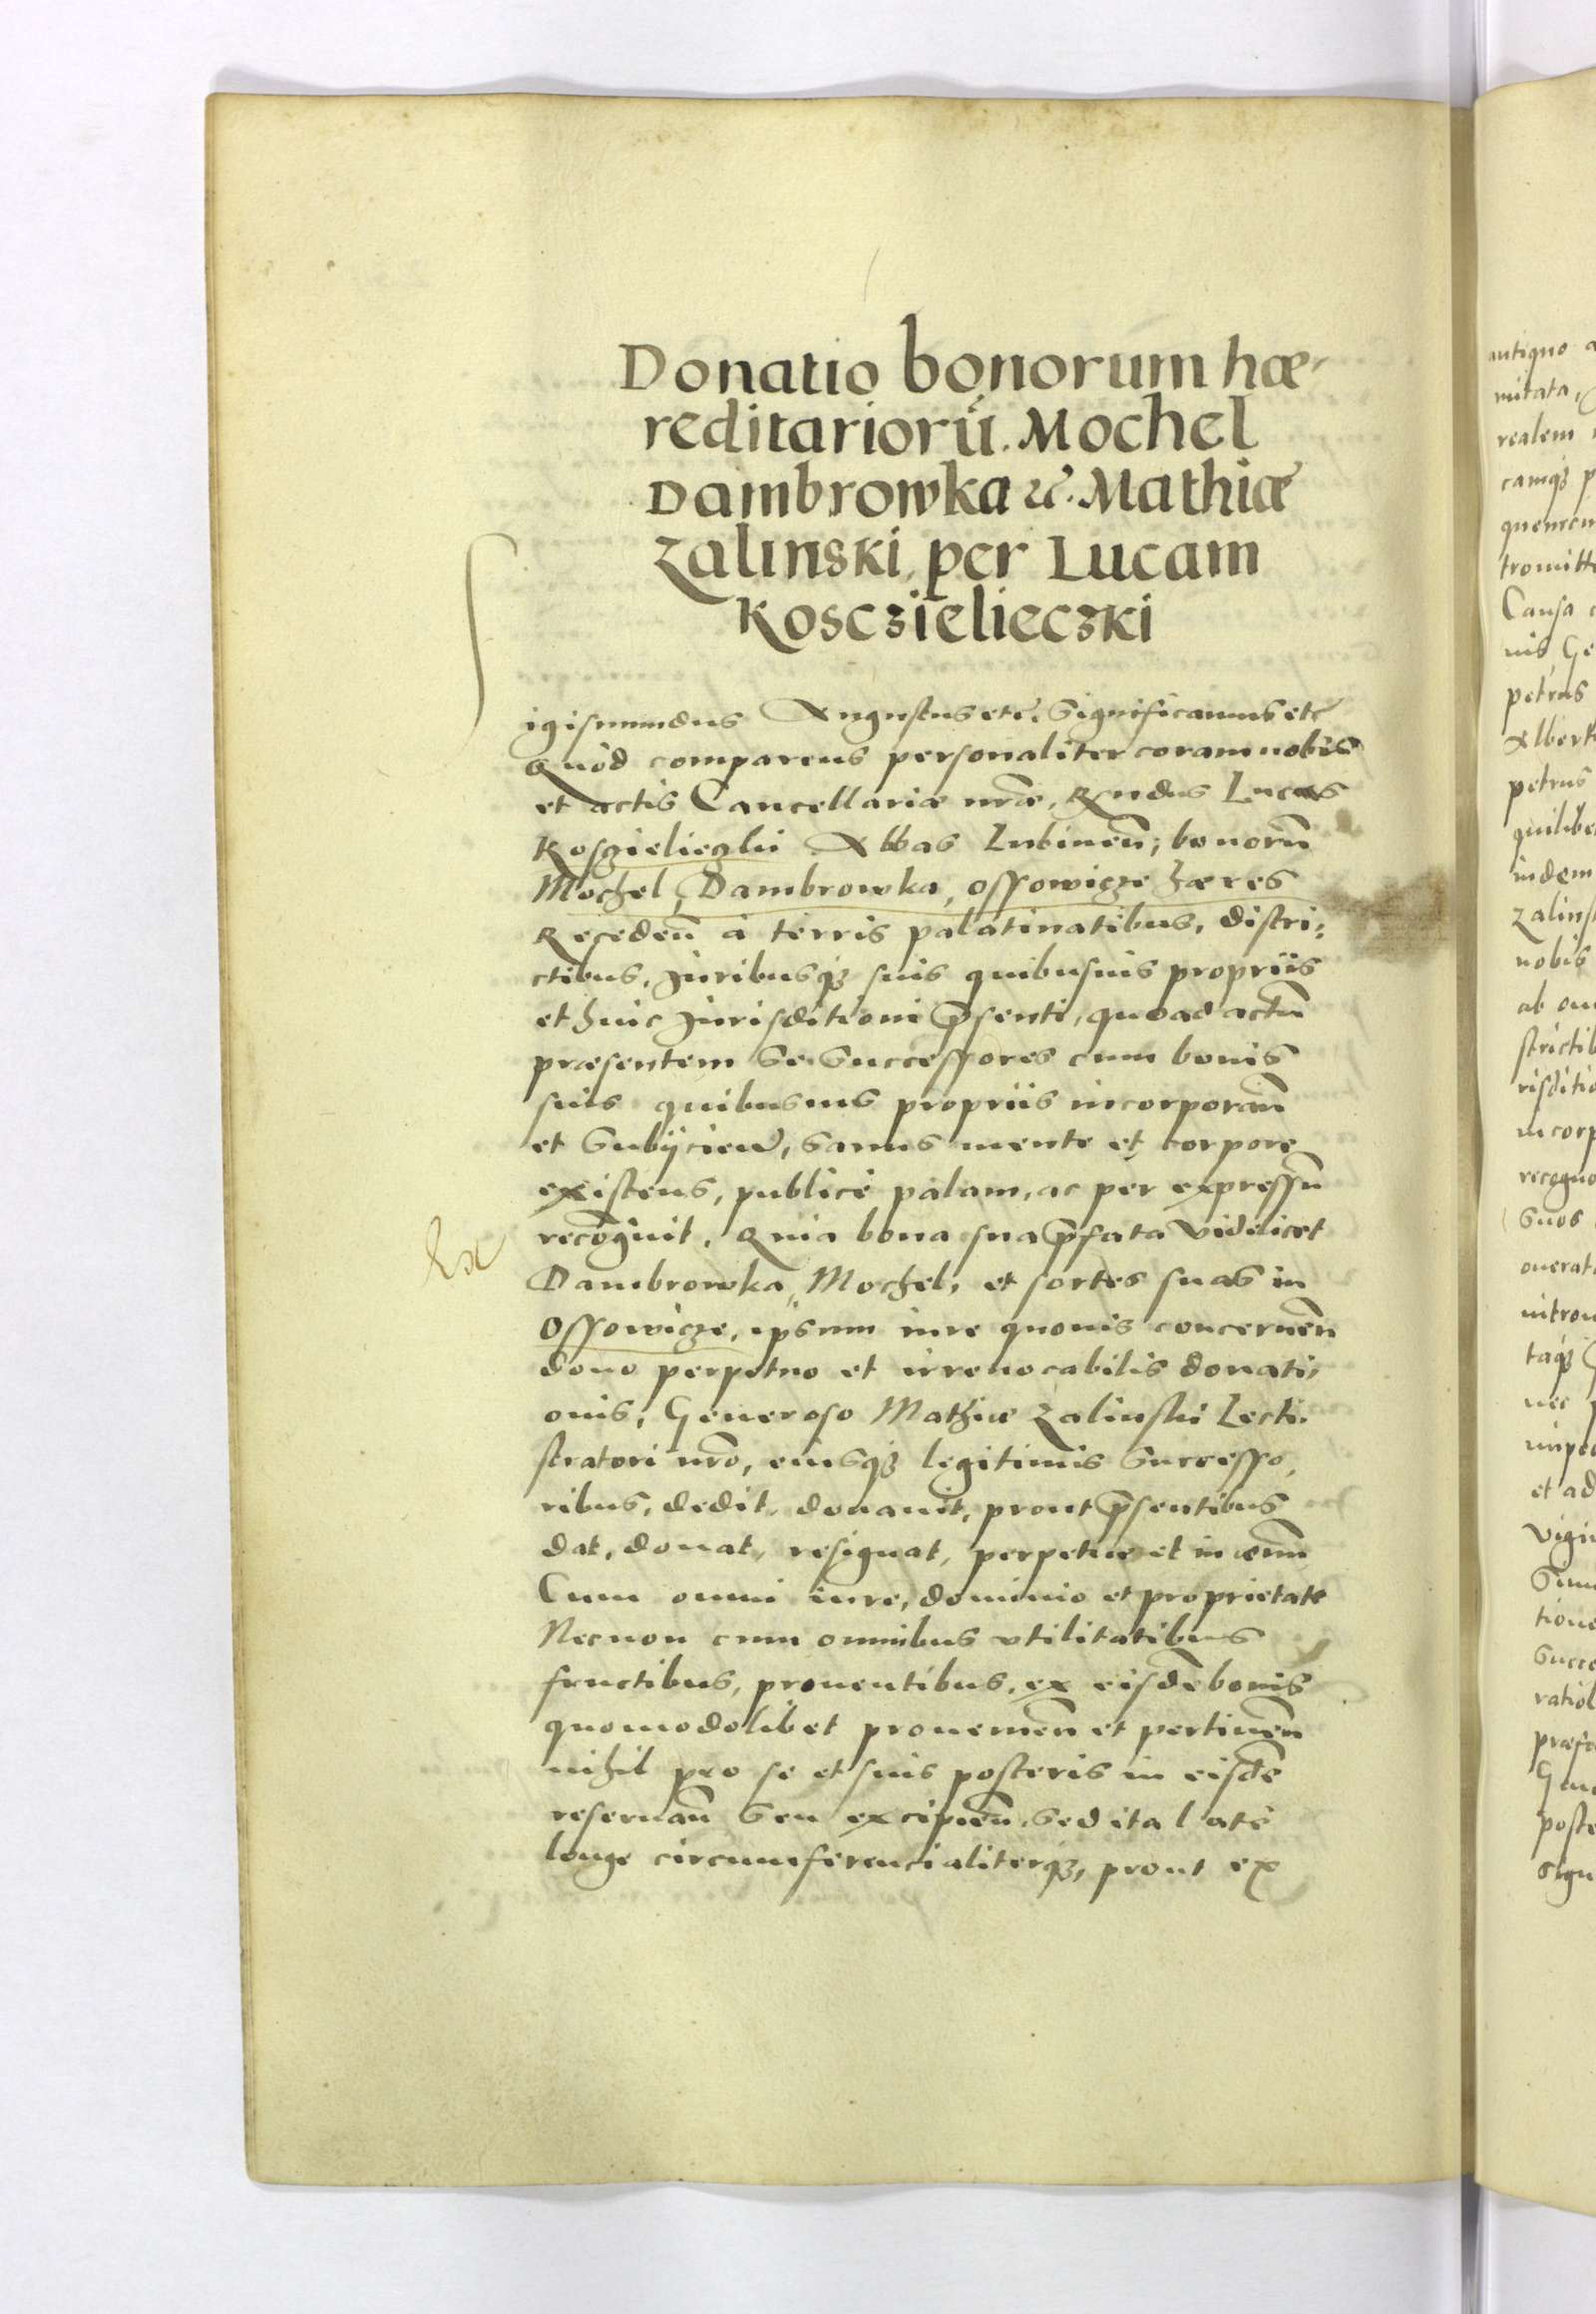 Donatio bonorum hæ-
reditariorũ. Mochel
Dambrowka etc. Mathiæ
Zalinski, per Lucam
Kosczielieczki
Sigismundus Augustus etc. Significamus etc
Quòd comparens personaliter coram nobis
et actis Cancellariæ nr̃æ, Rx̃ndus Lucas
Kosczielieczki Abbas Lubinen̄; bonorũ
Mochel, Dambrowka, Ossowicze hæres
Recedeñ à terris palatinatibus, distri-
ctibus, Juribusq3 suis quibusuis propriis
et huic Jurisditioni p̃senti, quoad actũ
præsentem se successores cum bonis
suis quibusuis propriis incorporan̄
et subijcien̄, sanus mente et corpore
existens, publicè palam, ac per expressũ
recog̃uit. Quia bona sua p̃fata videlicet
Dambrowka, Mochel, et sortes suas in
Ossowicze, ipsum iure quouis concernen̄
dono perpetuo et irreuocabilis donati-
onis, Generoso Mathiæ Zalinski Lecti-
stratori nr̃o, eiusq3 legitimis successo-
ribus, dedit, donauit, prout p̃sentibus
dat, donat, resignat, perpetuè et in æuũ
Cum omni iure, dominio et proprietate
Necnon cum omnibus vtilitatibus
fructibus, prouentibus, ex eisdẽ bonis
quomodolibet prouenien̄ et pertinen̄
nihil pro se et suis posteris in eisdẽ
reseruan̄ seu excipien̄. Sed ita latè
longe circumferencialiterq3, prout ex
antiquo
mitata,
realem
tromitt
Causa
nis, Ge
petrus
Albert
petrus
quilibe
indem
Zalins
nobis
strictib
risditio
incorp
recogno
suos
onerat
introm
nec
et ad
succe
ratiol
præfa
poste
sign